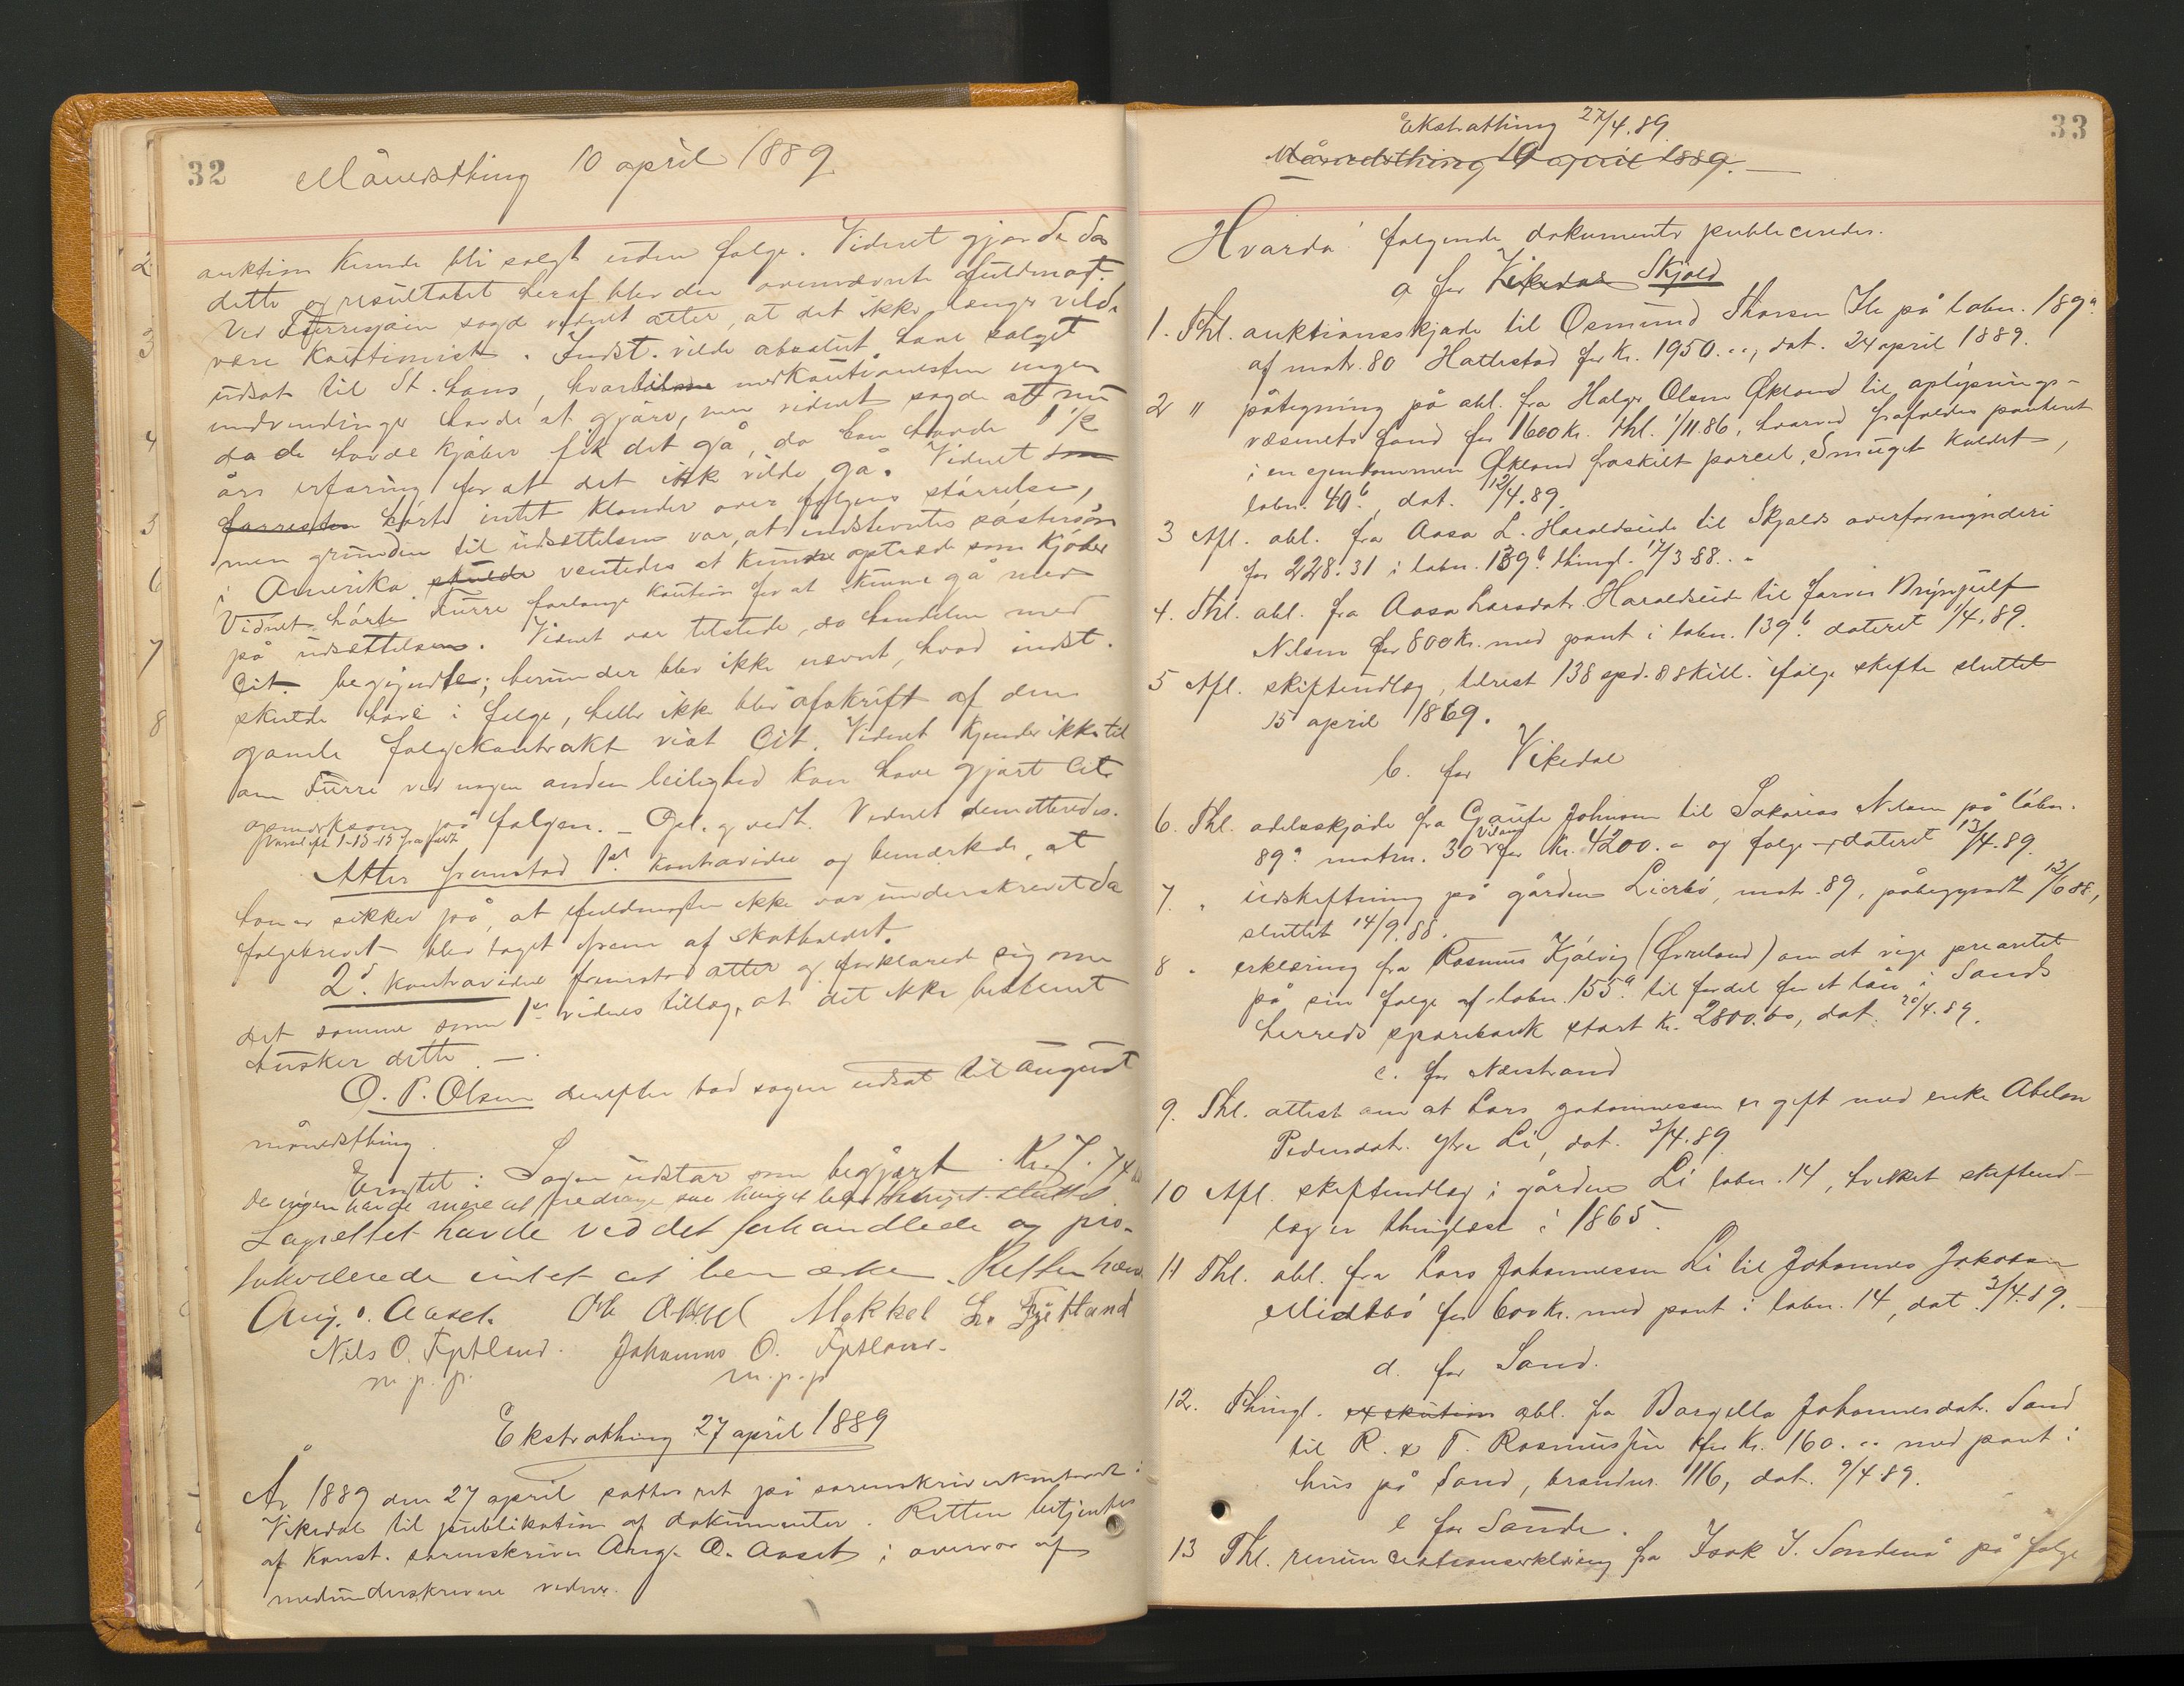 32
Månedsthing 10 april 1889
auktion kunde bli solgt uden følge. Vidnet gjorde da
dette og resultatet heraf blev den ovennævnte fuldmagt.
Ved Furresjøen sagde vidnet atter, at det ikke længer vilde
være kautionist. Indst. vilde absolut have salget
udsat til St. hans, hvortil medkautionisten ingen
indvendinger havde at gjøre, men vidnet sagde at nu
da de havde kjøber fik det gå, da han havde 1 1/2
års erfaring for at det ikke vilde gå. Vidnet
hørte intet klander over følgens størrelse,
men grunden til udsættelsen var, at indstevntes søstersøn
i Amerika skulde ventedes at kunde optræde som kjøber
Vidnet hørte Furre forlange kaution for at kunne gå med
på udsættelsen. Vidnet var tilstede, da handelen med
Cit. begyndte; herunder blev ikke nævnt, hvad indst.
skulde have i følge, heller ikke blev afskrift af den
gamle følgekontrakt vist Cit. Vidnet kjender ikke til
om Furre ved nogen anden leilighed kan have gjort Cit.
opmærksom på følgen. – Opl. og vedt. Vidnet demitteredes.
Atter fremstod 1ste kontravidne og bemærkede, at
han er sikker på, at fuldmagten ikke var underskrevet da
følgebrevet blev taget frem af skatholdet.
2d. kontravidne fremstod atter og forklarede sig om
det samme som 1ste vidnes tillæg, at det ikke bestemt
husker dette. –
O. P. Olsen derefter bad sagen udsat til august
månedsthing.
Eragtet: Sagen udstår som begjært.
Da ingen havde mere at fredrage saa thinget blev thinget sluttet
Lagrettet havde ved det forhandlede og pro-
tokollerede intet at bemærke. Retten hævet
Aug. O. Aaset. Mekkel L. Fjetland
Nils O. Fjetland. Johannes O. Fjetland.
m. p. p. m. p. p
Ekstrathing 27 april 1889
År 1889 den 27 april sattes ret på sorenskriverkontoret i
Vikedal til publikation af dokumenter. Retten betjentes
af konst. sorenskriver Aug. O. Aaset i overvær af
medunderskrevne vidner.
2
3
4
3
6
7
8
33
Ekstrathing 27/4.89.
Månedsthing 10 april 1889.
Hvorda følgende dokumenter publiceredes.
a for Vikedal Skjold
1. Thl. auktionsskjøde til Osmund Thorsen på løbnr. 189a
af matr. 80 Hattestad for Kr. 1950.00, dat. 24 april 1889.
2 " påtegning på obl. fra Helge Olsen Økland til oplysnings-
væsenets fond for 1600 kr. thl. 1/11.86, hvorved frafaldes panteret
i en eiendommen Økland fraskilt parcel, Smuget kaldet,
løbnr. 40b, dat. 12/4.89.
3 Afl. obl. fra Aasa L. Haraldseide til Skjolds overformynderi
for 228.31 i løbnr. 139b thingl. 17/3 88.
4. Thl. obl. fra Aasa Larsdatr. Haraldseide til farver Brynjulf
Nilsen for 800 kr. med pant i løbnr. 139b dateret 1/4.89.
5 Afl. skifteudlæg, tilrest 138 spd. 8 skill. ifølge skifte sluttet
15 april 1869.
b. for Vikedal
6. Thl. odelsskjøde fra Gaute Johnsen til Sakarias Nilsen på løbnr.
89a matrn. 30 for kr. 4200.- og følge – dateret 13/4.89.
7. " udskiftning på gården Lierbø, matr. 89, påbegyndt 12/6 88,
sluttet 14/9.88.
8 " erklæring fra Rasmus Kjølvig (Øvreland) om at vige prioritet
på sin følge af løbnr. 155a til fordel for et lån i Sands
herreds sparebank stort kr. 2800.00, dat. 20/4.89.
c. for Nærstrand
9. Thl. attest om at Lars Johannessen er gift med enke Abelon
Pedersdatr. Ytre Li, dat. 2/4.89
10 Afl. skifteudlæg i gården Li løbnr. 14, hvilket skifteud-
læg er thinglæst i 1865.
11 Thl. obl. fra Lars Johannessen Li til Johannes Jakobsen
Midtbø for 600 kr. med pant i løbnr. 14, dat. 2/4.89.
d. for Sand.
12. Thingl. exekution obl. fra Borgilla Johannesdatr. Sand
til R. & T. Rasmussen for kr. 160.00 med pant i
hus på Sand, brandnr. 116, dat. 9/4 89.
e for Saude.
13 Thl. renunciationserklæring fra Isak I. Sandenå på følge